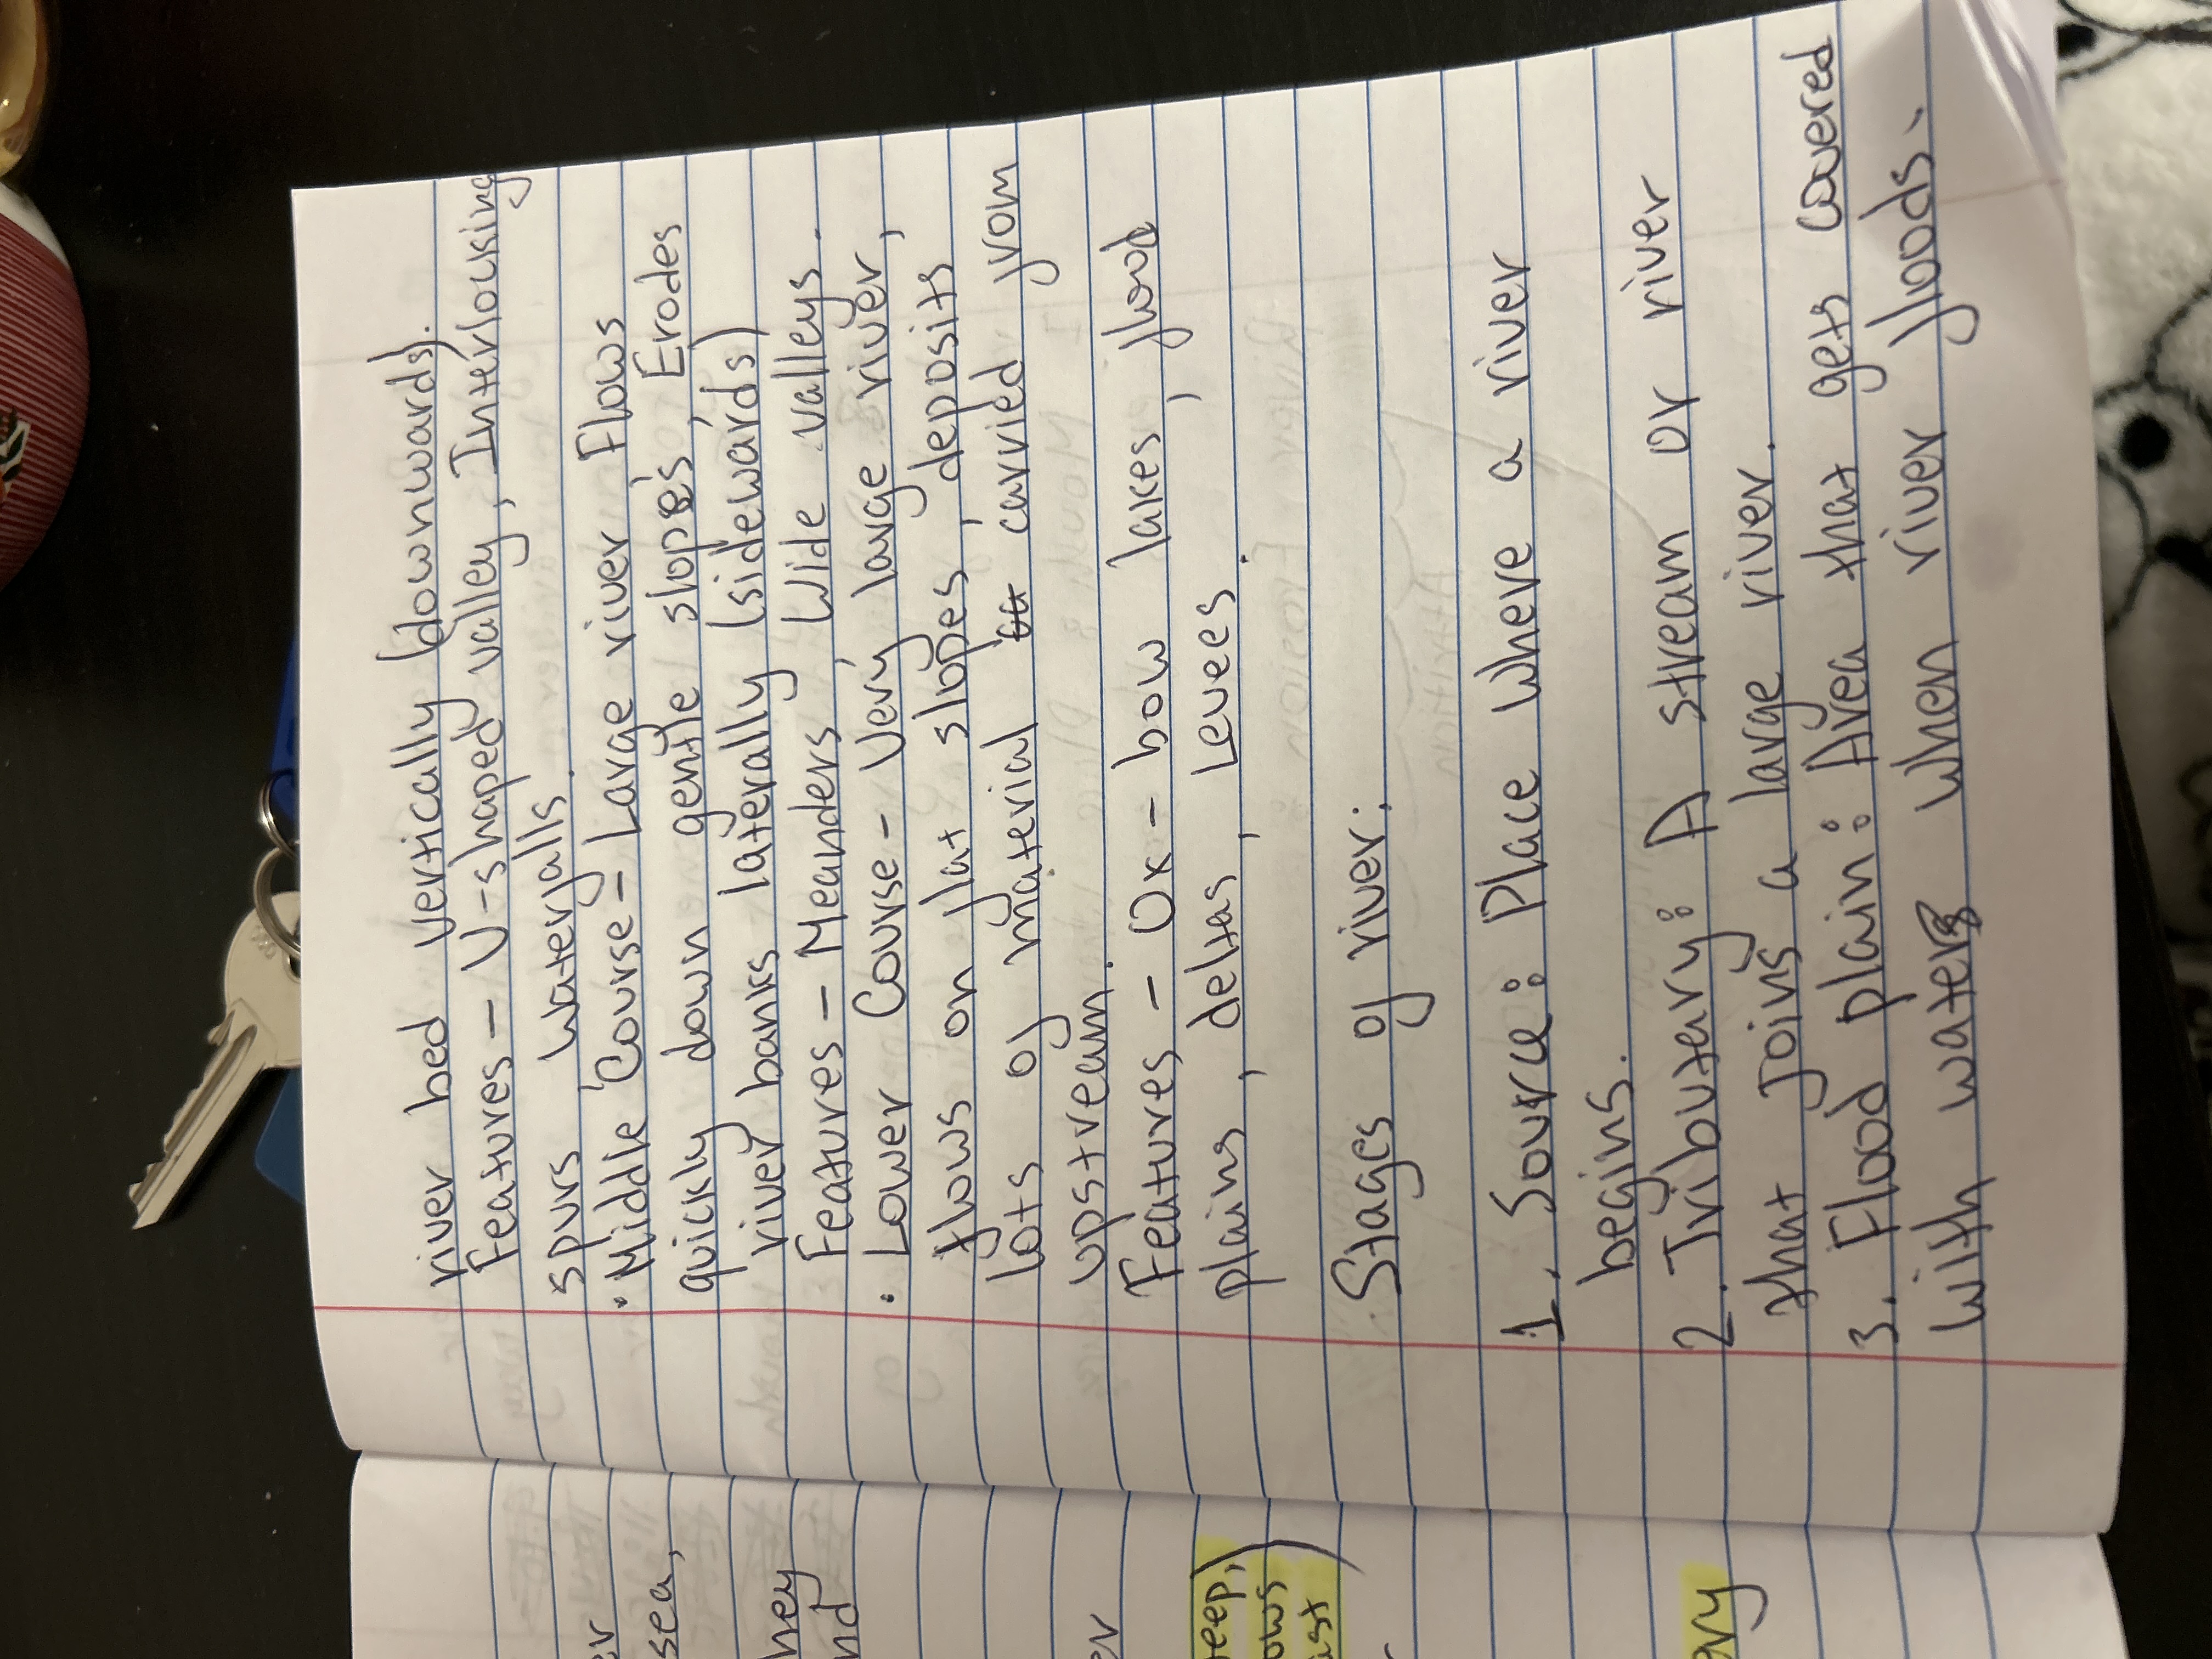 er
sea,
hey
nd
er
teep,
ows
ast
ery
river bed vertically (downwards).
Features - V-shaped valley, Interlocking
spurs, waterfalls.
• Middle Course - Large river Flows
quickly down gentle slopes, Erodes
river banks laterally (sidewards)
Features - Meanders, Wide valleys.
• Lower Course - Very large river,
flows on flat slopes, deposits
lots of material carried from
upstream.
Features - Ox-bow lakes, flood
plains, deltas, Levees.
Stages of river:
1. Source: Place where a river
begins.
2. Tributary: A stream or river
that joins a large river.
3. Flood plain: Area that gets covered
with water when river floods.